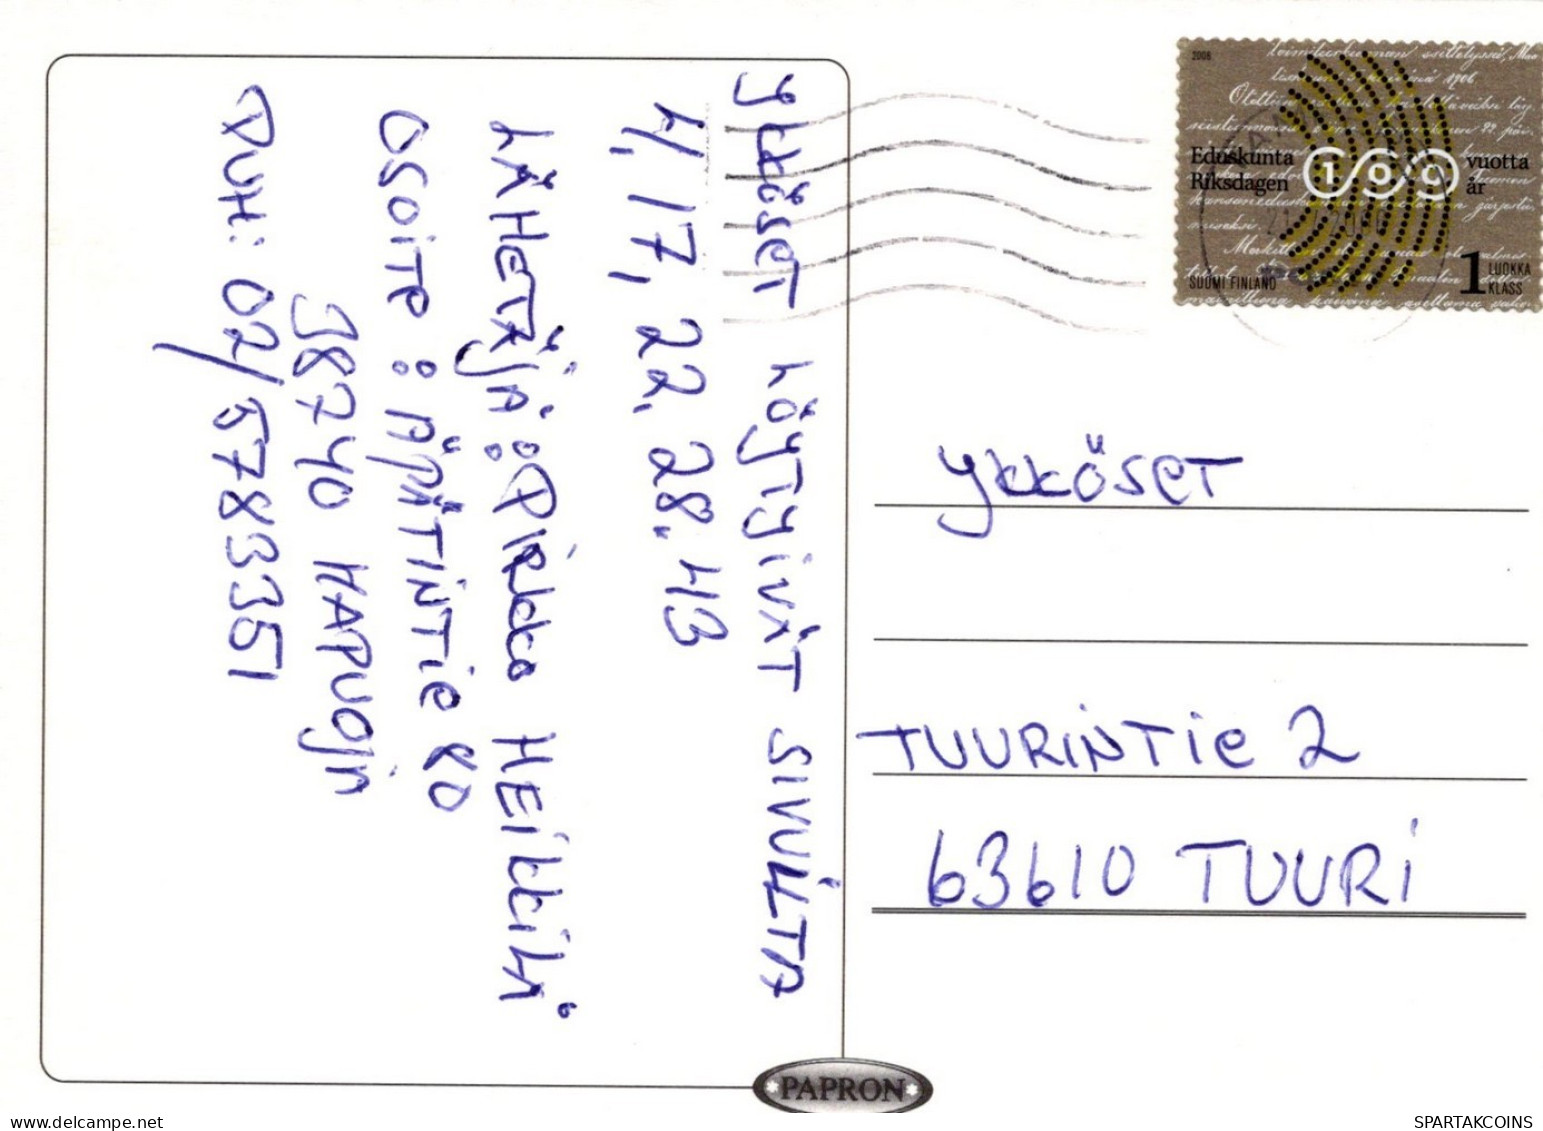 YKKÖSET LÖYTYIVÄT SIVUILTA
4, 17, 22, 28, 43
LÄHETTÄJÄ: PIRKKO HEIKKILÄ
OSOITE: ÄPÄTINTIE 80
38740 KAPUOJA
PUH: 02/5783351
YKKÖSET
TUURINTIE 2
63610 TUURI
2006
Eduskunta 100 vuotta
Riksdagen år
SUOMI FINLAND
1 LUOKKA
KLASS
PAPRON
SPARTAKCOINS